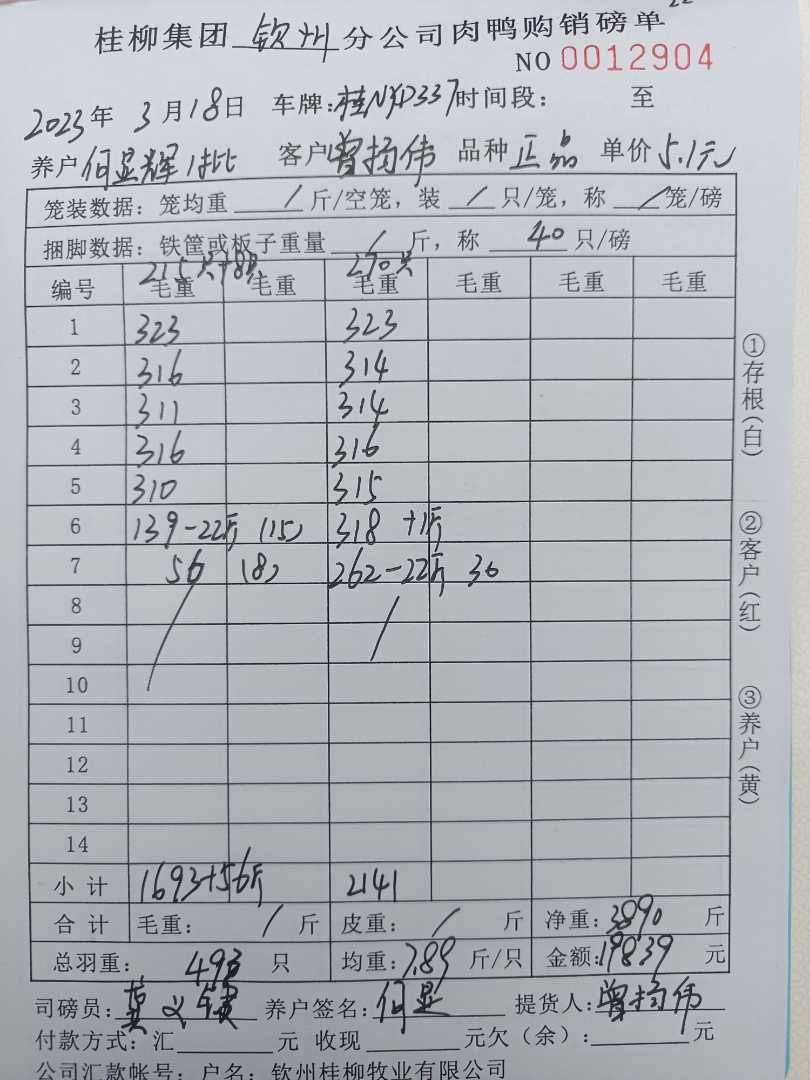 桂柳集团 钦州 分公司肉鸭购销磅单
NO 0012904
2023年 3月18日 车牌:桂NYD337 时间段: 至
养户 何显辉1批 客户 曾扬伟 品种 正品 单价 5.1元
笼装数据: 笼均重 / 斤/空笼, 装 / 只/笼, 称 / 笼/磅
捆脚数据: 铁筐或板子重量 / 斤, 称 40 只/磅
215只+8只 270只
编号 毛重 毛重 毛重 毛重 毛重 毛重
1 323 323
2 316 314
3 311 314
4 316 316
5 310 315
6 139-22斤 (15) 318 +1斤
7 56 (8) 262-22斤 30
8 / /
9
10
11
12
13
14
小计 1693+56斤 2141
合计 毛重: / 斤 皮重: / 斤 净重: 3890 斤
总羽重: 493 只 均重: 7.89 斤/只 金额: 19839 元
司磅员: 养户签名: 何显 提货人: 曾扬伟
付款方式: 汇 元 收现 元欠(余): 元
公司汇款帐号: 户名: 钦州桂柳牧业有限公司
①存根(白)
②客户(红)
③养户(黄)